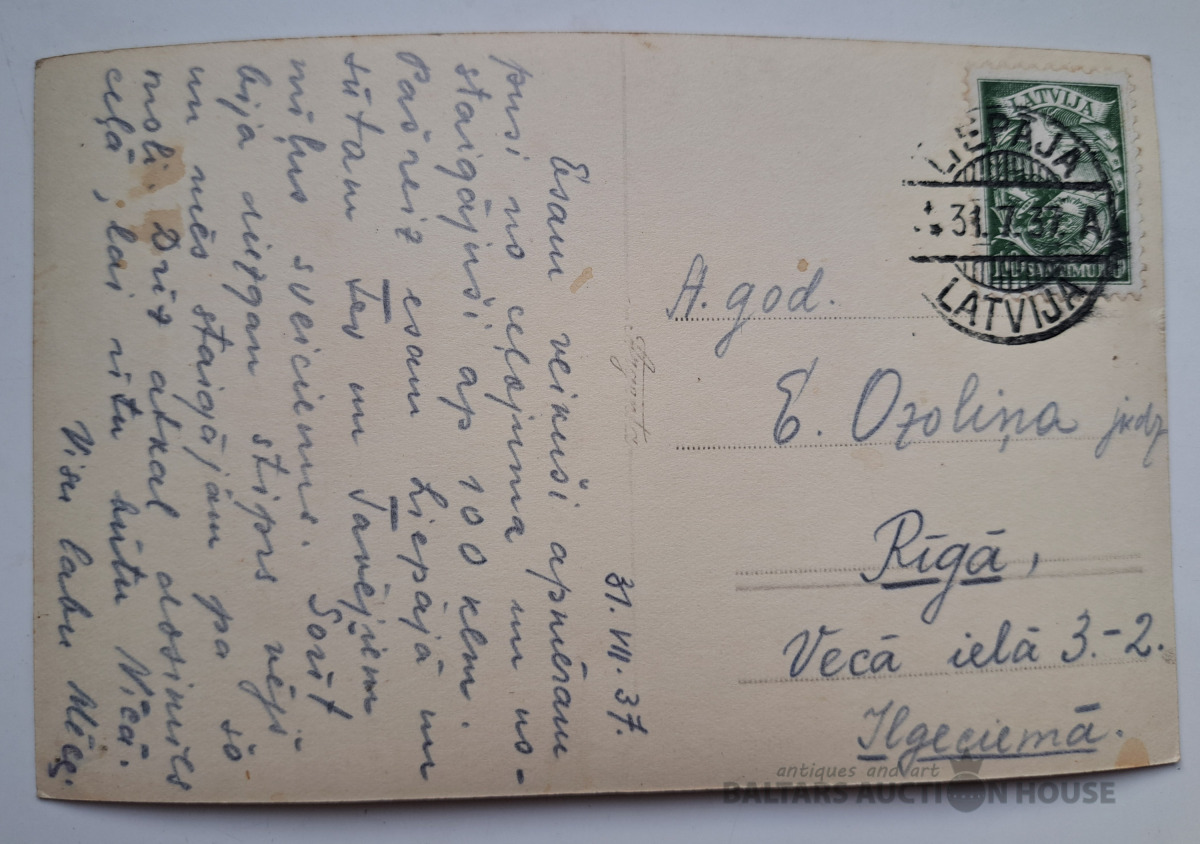 31. VII. 37.
Esam veikuši apmēram
pusi no ceļojuma un no-
staigājuši ap 100 klm.
Pašreiz esam Liepājā un
sūtam Tev un Tavējiem
mīļus sveicienus. Šorīt
bija diezgan stiprs vējš
un mēs staigājām pa šo
moli. Drīz atkal dosimies
ceļā, lai rītu būtu Nīcā.
Visu labu Mēs.
LATVIJA
LIEPĀJA
31.7.37. A
LATVIJA
A. god.
E. Ozoliņa jkdz
Rīgā,
Vecā ielā 3.-2.
Ilgeciemā.
antiques and art
BALTARS AUCTION HOUSE